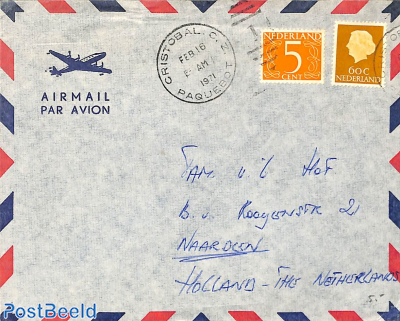 CRISTOBAL, C. Z.
FEB 16
AM
1971
PAQUEBOT
NEDERLAND
5
CENT
60c
NEDERLAND
AIRMAIL
PAR AVION
FAM. v. 't HOF
B. v. 21
NAARDEN
HOLLAND - THE NETHERLANDS
5.-
PostBeeld